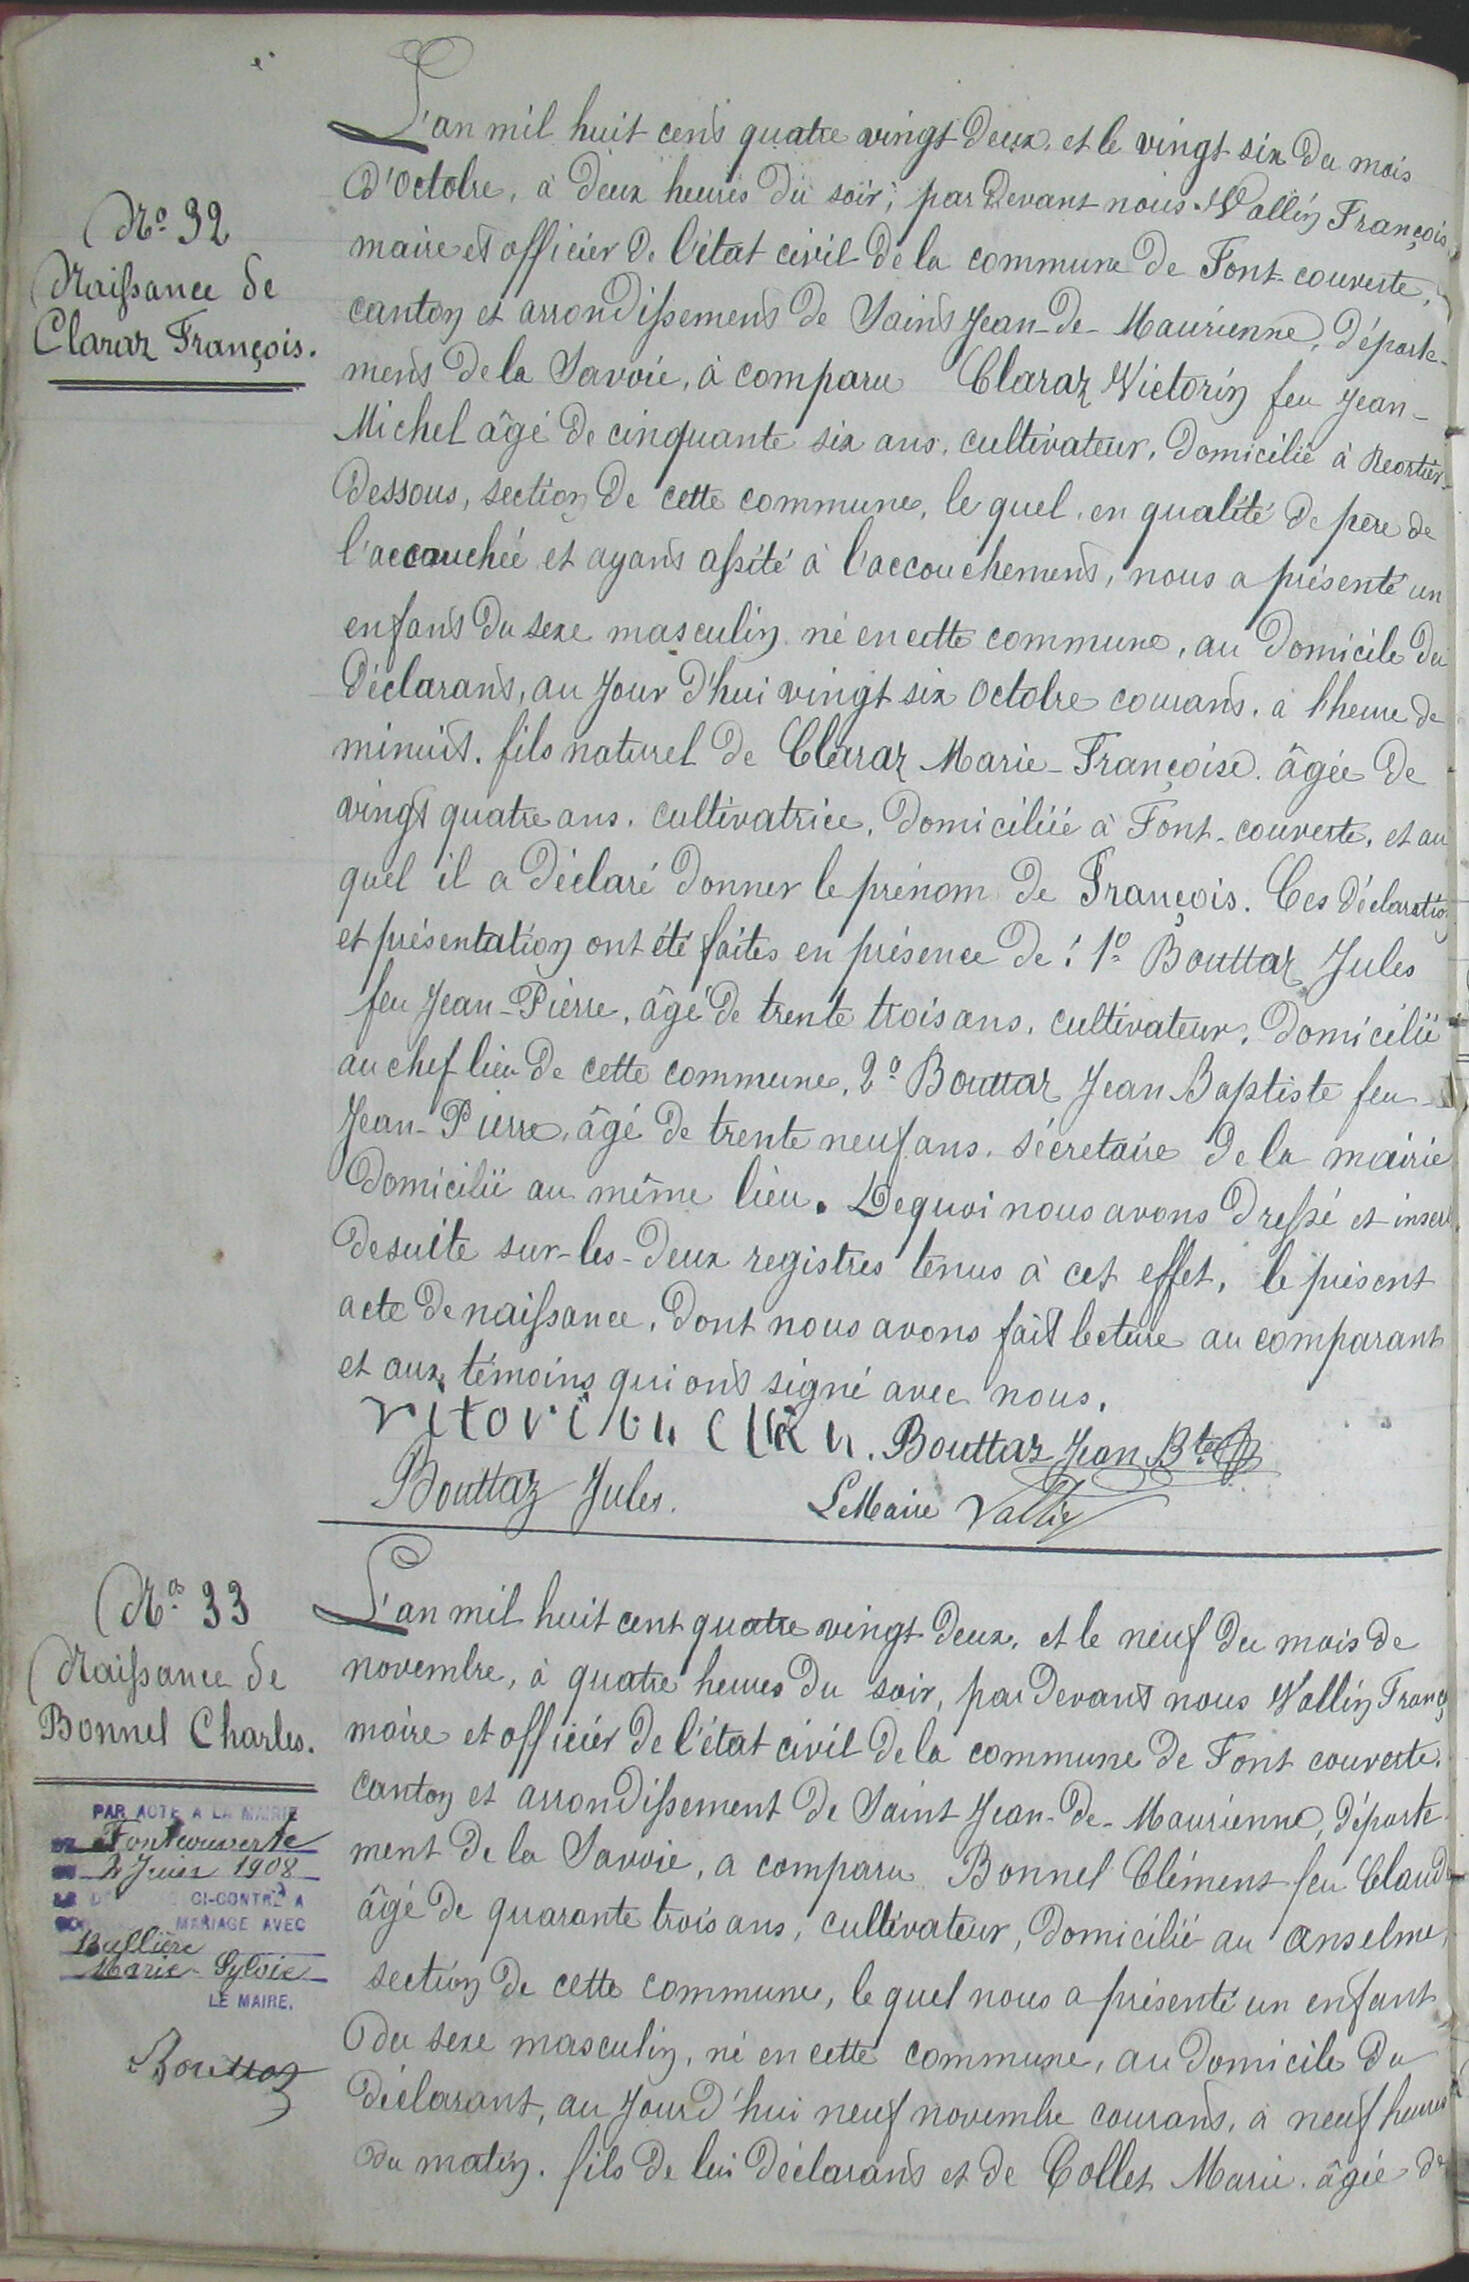 No 32
Naissance de
Claraz François.
L'an mil huit cent quatre vingt deux, et le vingt six du mois
d'Octobre, à deux heures du soir, par devant nous Vallin François,
maire et officier de l'état civil de la commune de Font-couverte,
canton et arrondissement de Saint Jean-de-Maurienne, départe-
ment de la Savoie, à comparu Claraz Victorin feu Jean-
Michel âgé de cinquante six ans, cultivateur, domicilié à Reortier-
dessous, section de cette commune, le quel, en qualité de père de
l'accouchée et ayant assité à l'accouchement, nous a présenté un
enfant du sexe masculin né en cette commune, au domicile du
déclarant, au jour d'hui vingt six Octobre courant, à l'heure de
minuit. fils naturel de Claraz Marie-Françoise âgée de
vingt quatre ans, cultivatrice, domiciliée à Font-couverte, et au
quel il a déclaré donner le prénom de François. Ces déclaration
et présentation ont été faites en présence de: 1º Bouttaz Jules
feu Jean-Pierre, âgé de trente trois ans, cultivateur, domicilié
au chef lieu de cette commune, 2º Bouttaz Jean Baptiste feu
Jean-Pierre, âgé de trente neuf ans, sécretaire de la mairie
domicilié au même lieu. De quoi nous avons dressé et inseré
de suite sur-les-deux registres tenus à cet effet, le présent
acte de naissance, dont nous avons fait lecture au comparant
et aux témoins qui ont signé avec nous.
Bouttaz Jean Bte
Bouttaz Jules. Le Maire Vallin
No 33
Naissance de
Bonnel Charles.
PAR ACTE A LA MAIRIE
DE Fontcouverte
DU 2 Juin 1908
CI-CONTRE A
MARIAGE AVEC
Rullière
Marie-Sylvie
LE MAIRE,
Bouttaz
L'an mil huit cent quatre vingt deux, et le neuf du mois de
novembre, à quatre heures du soir, par devant nous Vallin Franç
maire et officier de l'état civil de la commune de Font couverte,
canton et arrondissement de Saint Jean-de-Maurienne, départe-
ment de la Savoie, a comparu Bonnel Clément feu Claude
âgé de quarante trois ans, cultivateur, domicilié au Anselme,
section de cette commune, le quel nous a présenté un enfant
du sexe masculin, né en cette commune, au domicile du
déclarant, au jour d'hui neuf novembre courant, à neuf heures
du matin. fils de lui déclarant et de Collet Marie âgée de